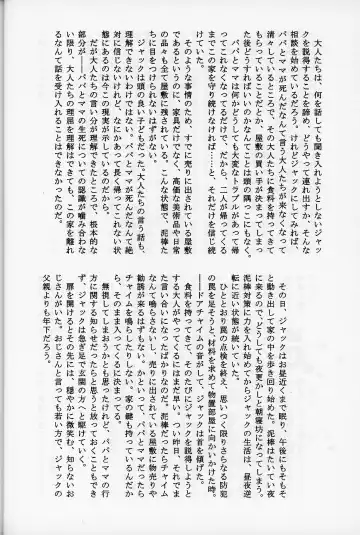 大人たちは、何を話しても聞き入れようとしないジャッ
クを説得することを諦め、今度はどうやって連れ出すか、そんな
相談を始めているのだろう。けれど、ジャックにしてみれば、
パパとママが死んだなんて言う大人たちが来なくなって
清々しているところで、その大人たちに食料を持ってきて
もらっていることだとか、屋敷の買い手が決まってしまっ
た後どうすればいいのかなんてことは頭の隅にもなく、
　パパとママは何かがどうしても大変なトラブルがあって帰っ
てこれなくなっているだけなのだから、二人が帰ってくる
までこの家を守り続けなければ……と、それだけを信じ続
けていた。
　そのような事情のため、すでに売りに出されている屋敷
であるというのに、家具だけでなく、高価な美術品や日常
の品々も全て屋敷に残されている。こんな状態で、泥棒た
ちに目をつけられないはずがない。
　ジャックは頭の良い子どもだった。大人たちの言う話も、
理解できないわけではない。パパとママが死んだなんて絶
対に信じないけれど、なにかあって長く帰ってこれない状
態にあるのは今この現実が示しているのだから。
　だが大人たちの言い分が理解できたところで、根本的な
部分が――パパとママの生死についての認識が噛み合わな
い限り、大人たちの理屈を理解はできても、この家を離れ
るなんて話を受け入れることはできなかったのだ。
　その日、ジャックはお昼近くまで眠り、午後にもそもそ
と動き出して家の中を歩き回り始めた。泥棒はたいてい夜
に来るので、どうしても夜更かしと朝寝坊になってしまう。
泥棒対策に力を入れ始めてからジャックの生活は、昼夜逆
転に近い状態が続いていた。
　ひととおり罠の点検を終え、思いつく限りさらなる防犯
の罠を足そうと、材料を求めて物置部屋に向かいかけた時。
――ドアチャイムの音がして、ジャックは首を傾げた。
　食料を持ってきて、そのたびにジャックを説得しようと
する大人がやってくるにはまだ早い。つい昨日、それでま
た言い合いになったばかりなのだ。泥棒だったらチャイム
なんて鳴らさないし、売りに出されている屋敷に物売りや
勧誘が来るはずもない。かといって、パパとママだったら
チャイムを鳴らしたりしない。家の鍵も持っているんだか
ら、そのまま入ってくるに決まってる。
　無視してしまおうかとも思ったけれど、パパとママの行
方に関する知らせだったらと思うと放っておくこともでき
ず、ジャックは急ぎ足で玄関の方へと駆けていく。
　扉を開けるとその先には、穏やかに微笑む、知らないお
じさんがいた。おじさんと言っても若い方で、ジャックの
父親よりも年下だろう。